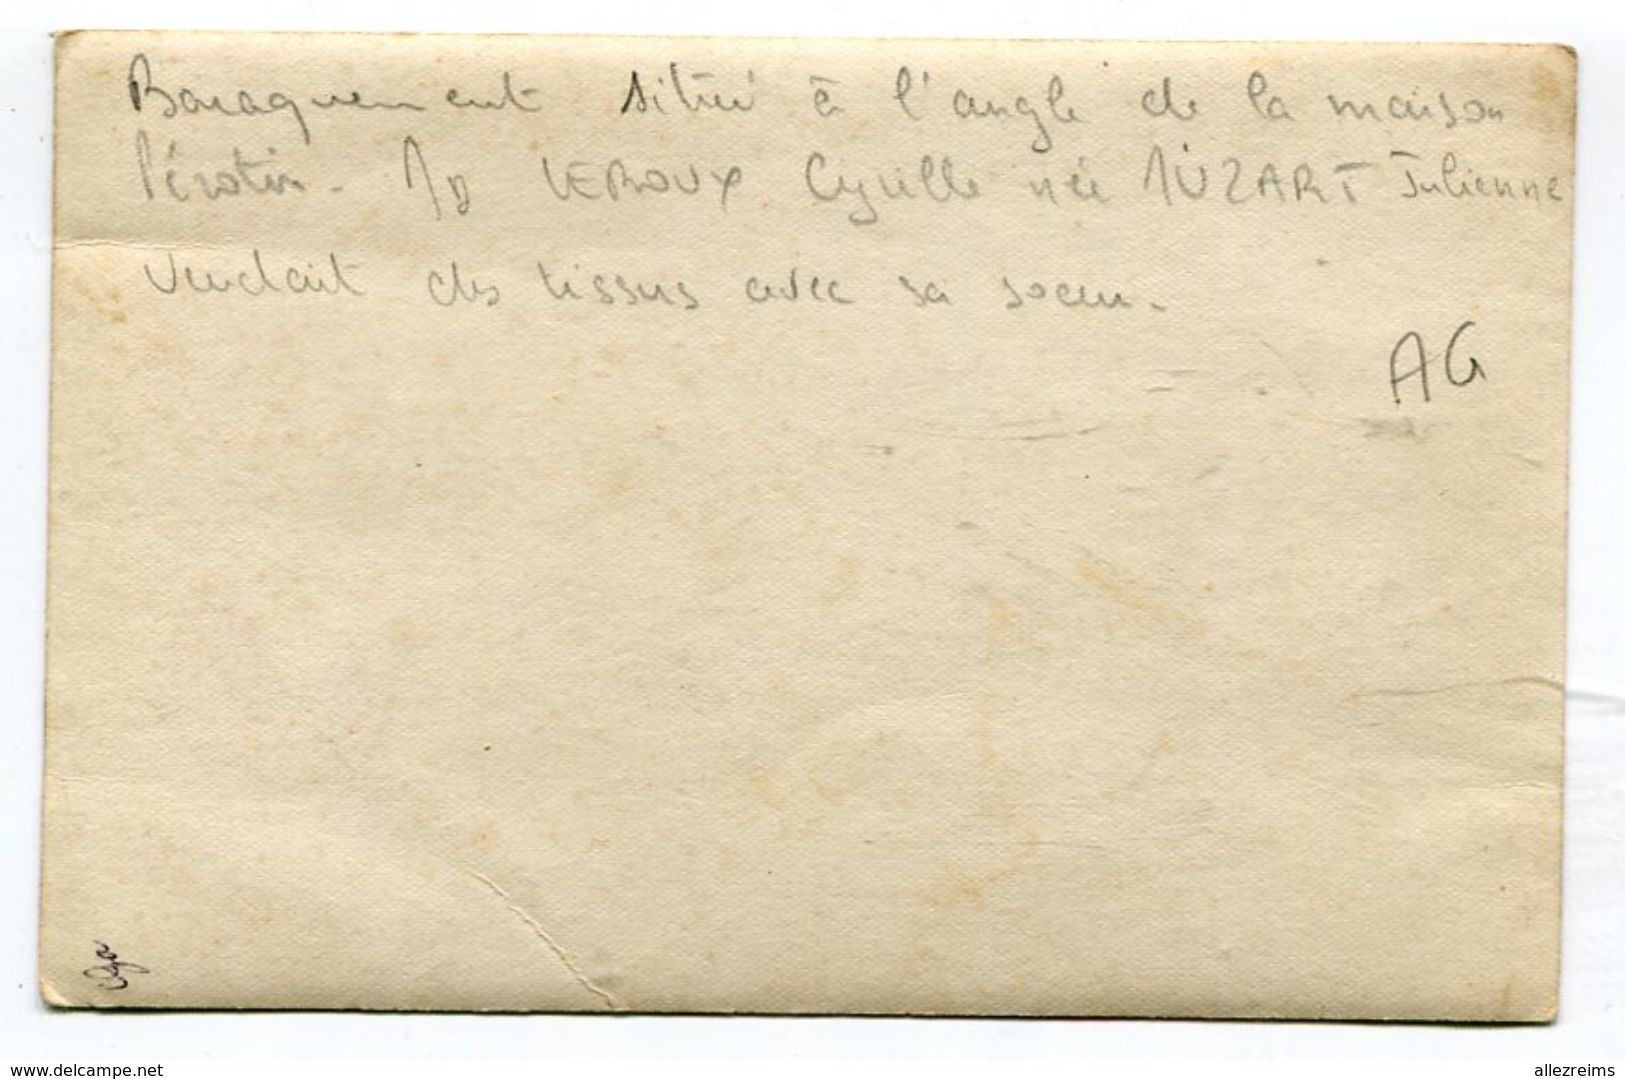 Baraquement situé à l'angle de la maison
Pérotin - LEROUX Cyrille née NUZART Julienne
vendait des tissus avec sa soeur.
AG
www.delcampe.net
allezreims